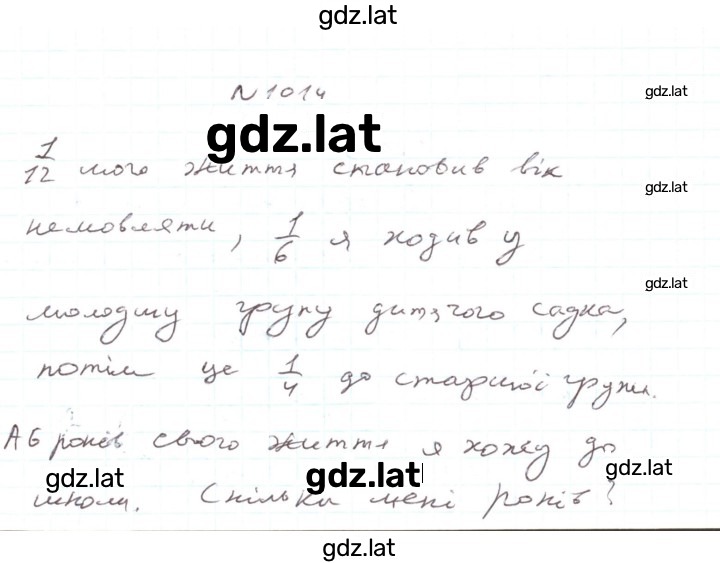 gdz.lat
№ 1014
gdz.lat
gdz.lat
1/12 мого життя становив вік
gdz.lat
немовляти, 1/6 я ходив у
gdz.lat
молодшу групу дитячого садка,
потім ще 1/4 до старшої групи.
А 6 років свого життя я хожу до
gdz.lat gdz.lat gdz.lat
школи. Скільки мені років?
gdz.lat